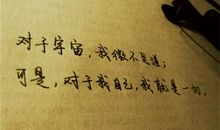 对于宇宙，我微不足道；
可是，对于我自己，我就是一切。